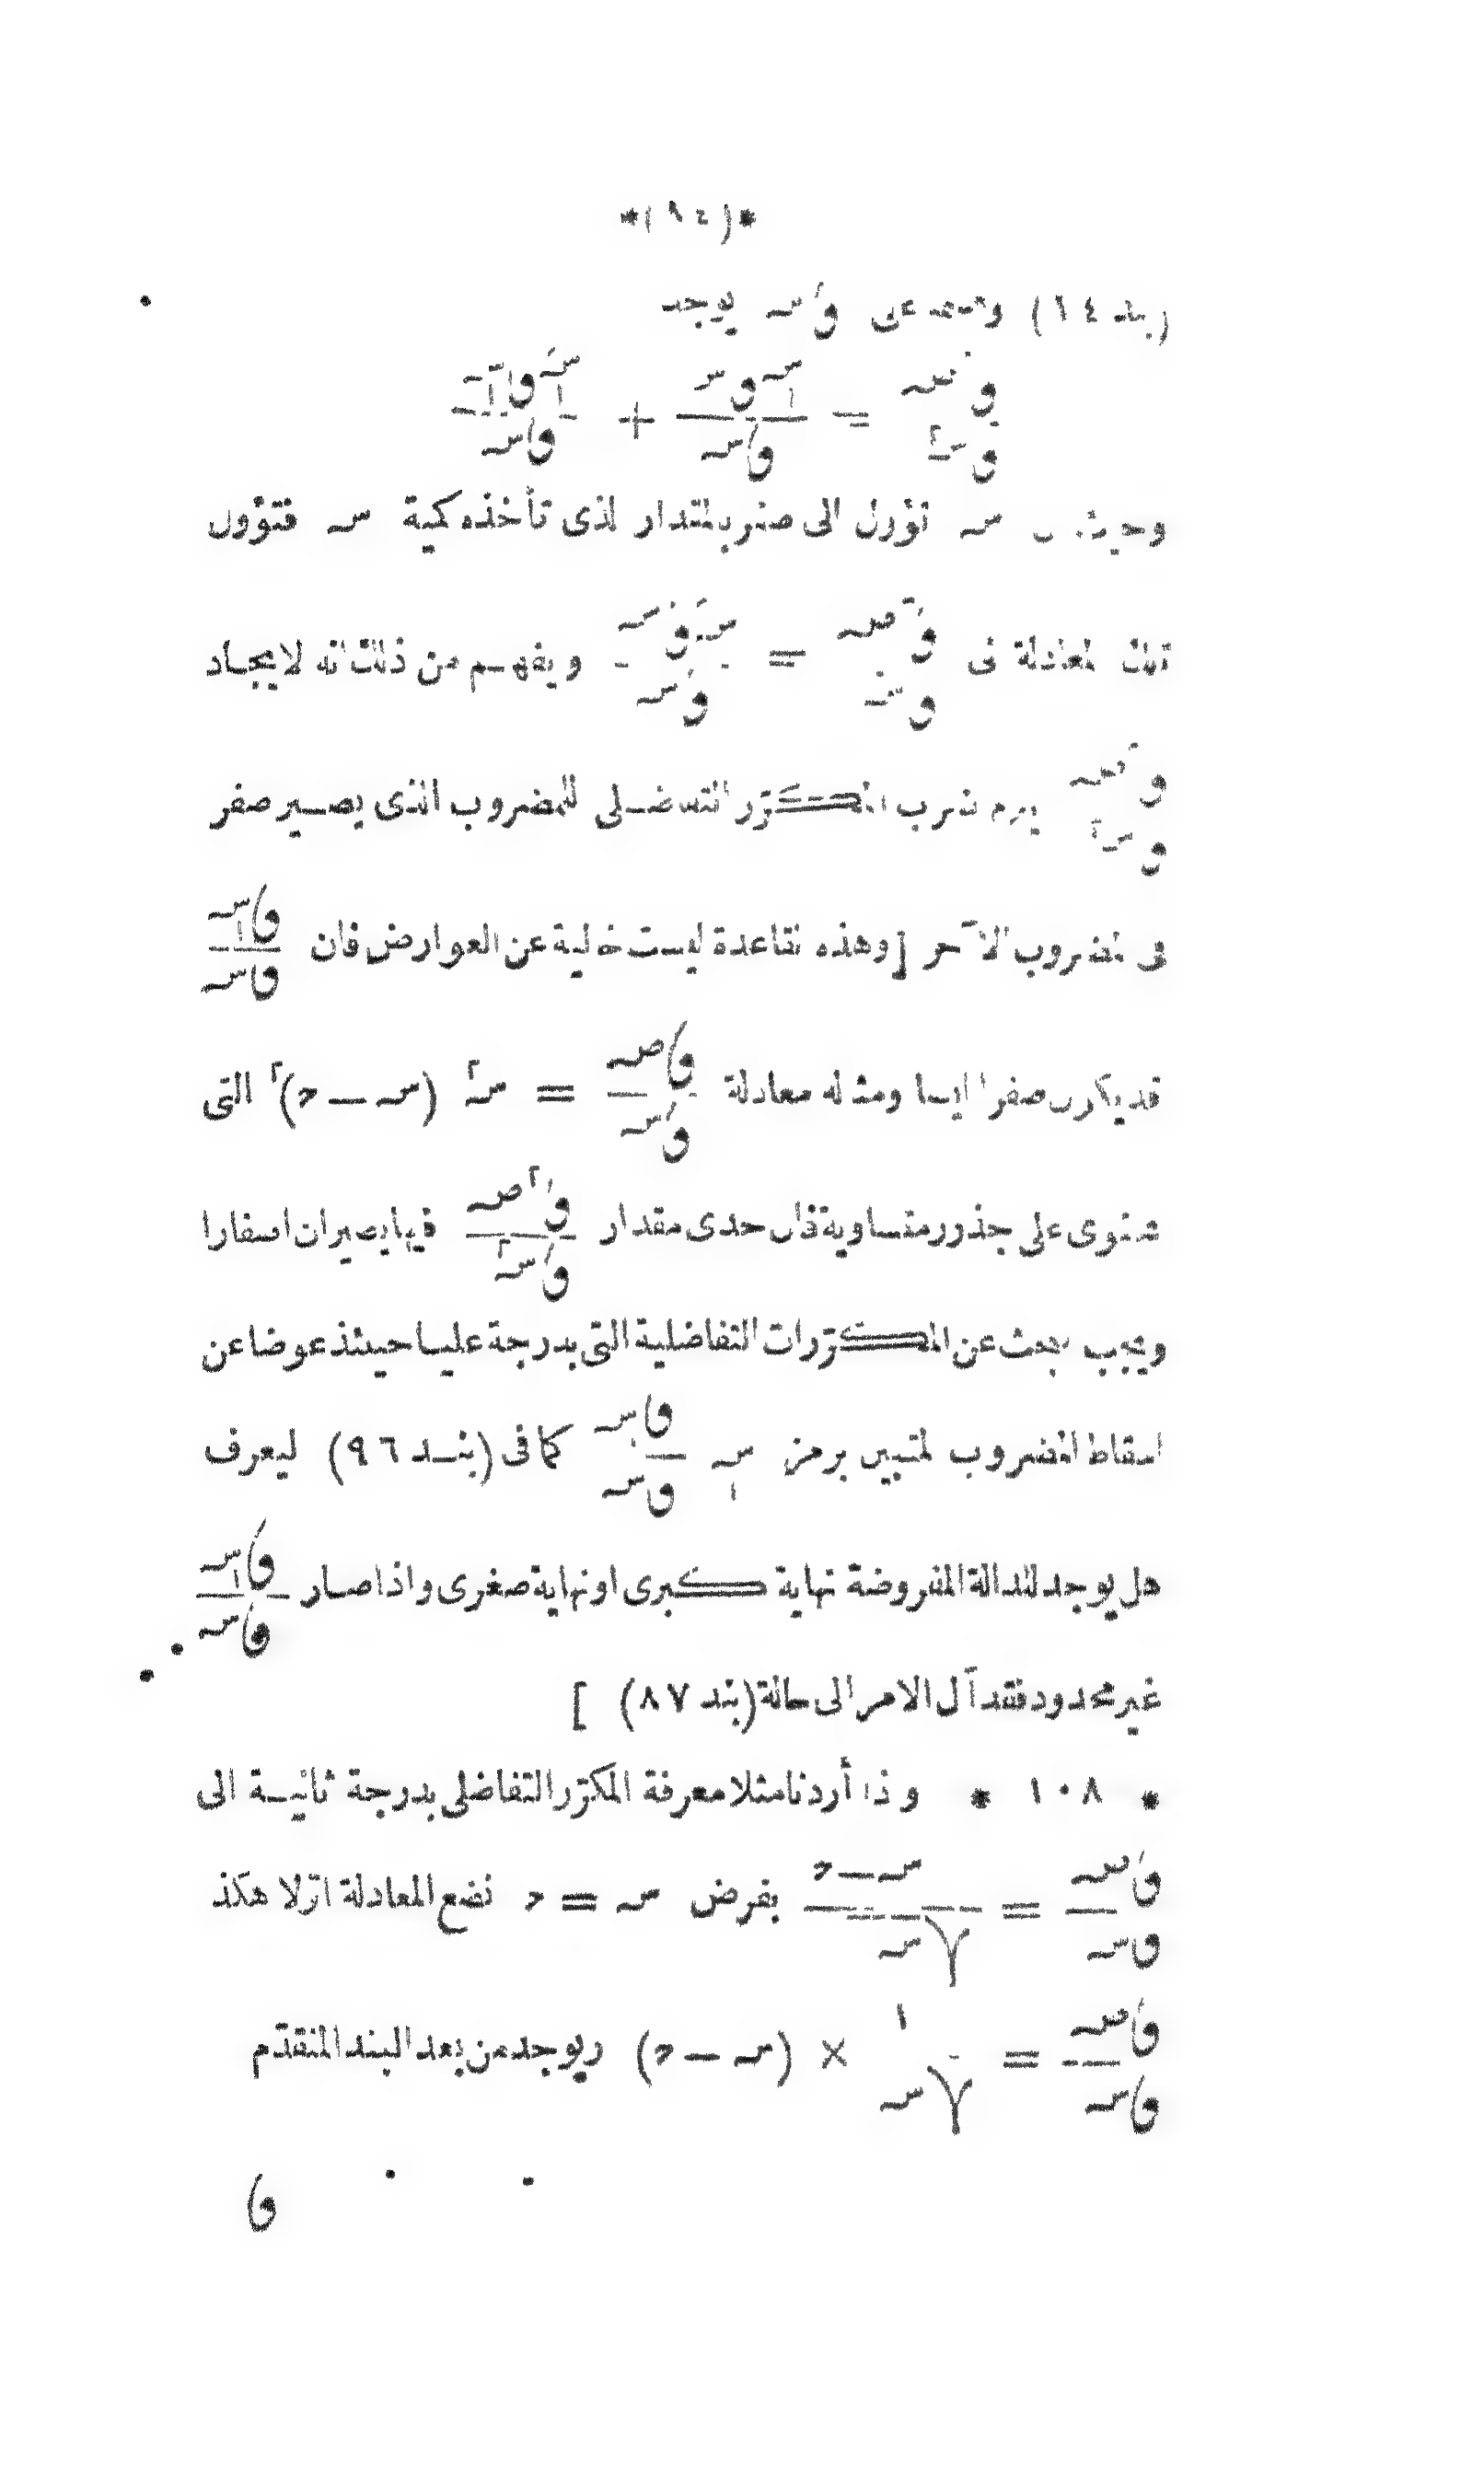 *(٩٤)*
(بند ١٤) وقسمه على و س يوجد
و٢ص / و س٢ = س١ و س / و س + س و س١ / و س
وحيث س تؤول الى صفر بالمقدار الذى تأخذه كمية س فتؤول
تلك المعادلة فى و٢ص / و س٢ = س و س١ / و س ويفهم من ذلك انه لايجاد
و٢ص / و س٢ يلزم ضرب المكرّر التفاضلى للمضروب الذى يصير صفر
فى المضروب الآخر [وهذه القاعدة ليست خالية عن العوارض فان و س١ / و س
قد يكون صفرا ايضا ومثاله معادلة و ص / و س = س٢ (س − ح)٢ التى
تحتوى على جذور متساوية فان احدى مقدار و٢ص / و س٢ فيها يصيران اصفارا
ويجب البحث عن المكرّرات التفاضلية التى بدرجة عليا حينئذ عوضا عن
اسقاط المضروب المتبين برمز س١ و س١ / و س كما فى (بند ٩٦) ليعرف
هل يوجد للدالة المفروضة نهاية كبرى او نهاية صغرى واذا صار و س١ / و س
غير محدود فقد آل الامر الى حالة (بند ٨٧) ]
* ١٠٨ * واذا أردنا مثلا معرفة المكرّر التفاضلى بدرجة ثانية الى
و ص / و س = س − ح / √س بفرض س = ح نضع المعادلة اوّلا هكذ
و ص / و س = ١ / √س × (س − ح) ويوجد من بعد البند المتقدّم
و